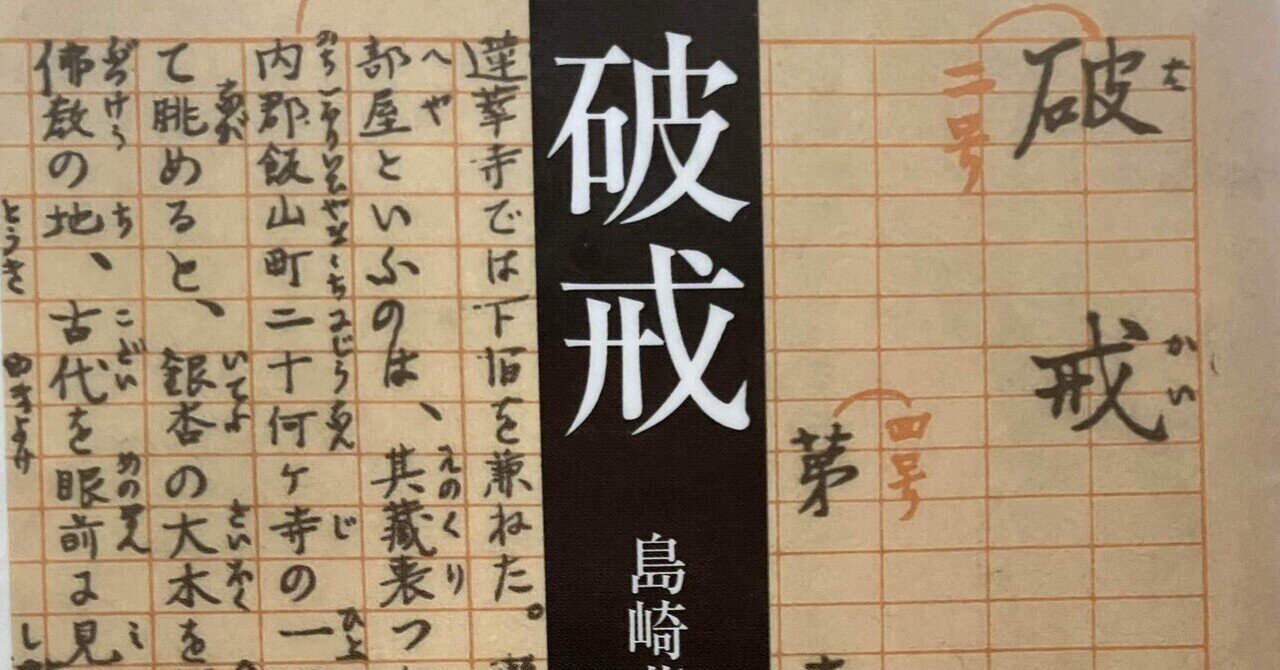 破戒
はかい
二号
第
四号
破戒
島崎
蓮華寺では下宿を兼ねた。
部屋といふのは、其藏裏つ
へや
えのくり
内郡飯山町二十何ケ寺の一
みちごほりいひやまゝちにじふなん
じ
ひと
て眺めると、銀杏の大木を
なが
いてふ
たいぼく
佛教の地、古代を眼前に見
ぶつけう
ち
こだい
めのまへ
み
とうき